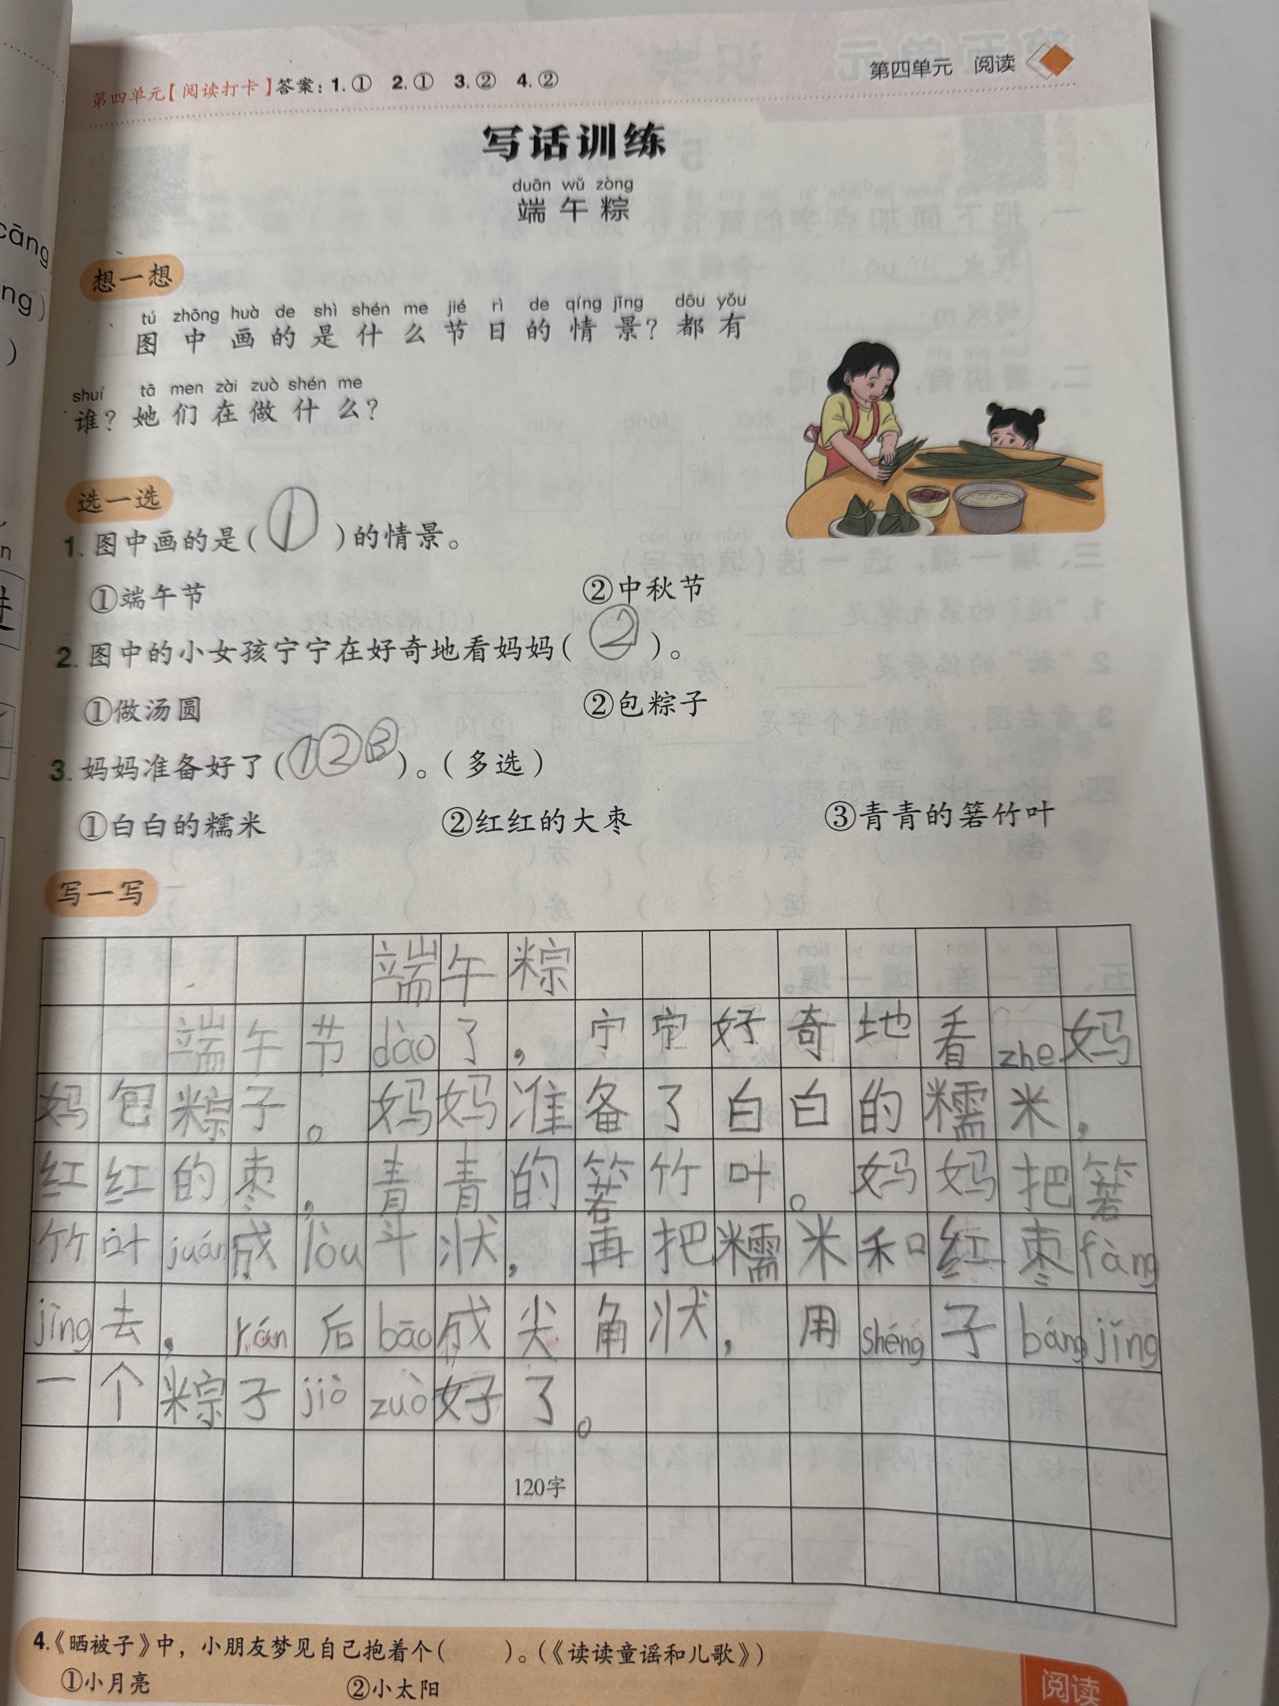 第四单元【阅读打卡】答案：1.① 2.① 3.② 4.②
第四单元 阅读
写话训练
duān wǔ zòng
端午粽
想一想
tú zhōng huà de shì shén me jié rì de qíng jǐng dōu yǒu
图中画的是什么节日的情景？都有
shuí tā men zài zuò shén me
谁？她们在做什么？
选一选
1.图中画的是（①）的情景。
①端午节 ②中秋节
2.图中的小女孩宁宁在好奇地看妈妈（②）。
①做汤圆 ②包粽子
3.妈妈准备好了（①②③）。（多选）
①白白的糯米 ②红红的大枣 ③青青的箬竹叶
写一写
端午粽
端午节dào了，宁宁好奇地看zhe妈
妈包粽子。妈妈准备了白白的糯米，
红红的枣，青青的箬竹叶。妈妈把箬
竹叶juán成lòu斗状，再把糯米和红枣fàng
jìng去，rán后bāo成尖角状，用shéng子bángjǐng
一个粽子jiò zuò好了。
120字
4.《晒被子》中，小朋友梦见自己抱着个（ ）。（《读读童谣和儿歌》）
①小月亮 ②小太阳
阅读